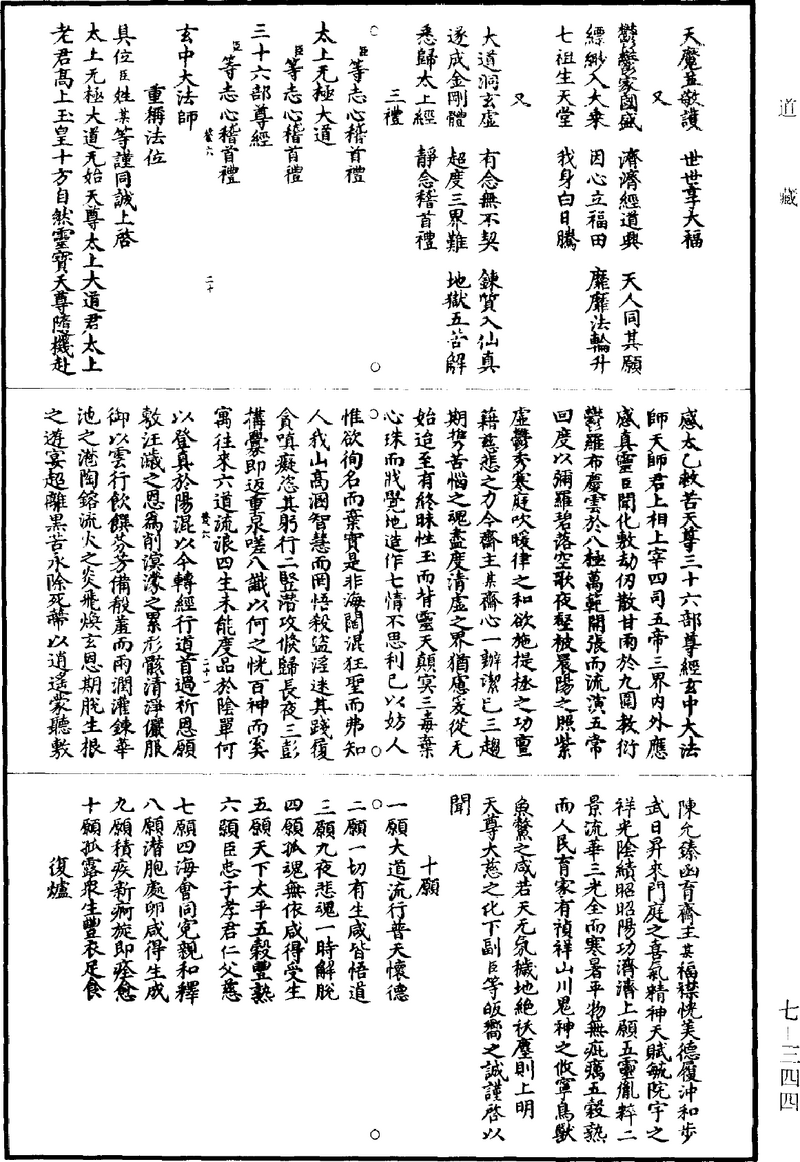 道藏
天魔並敬護　世世享大福
又
鬱鬱家國盛　濟濟經道興　天人同其願
縹緲入大乘　因心立福田　靡靡法輪升
七祖生天堂　我身白日騰
又
大道洞玄虛　有念無不契　鍊質入仙真
遂成金剛體　超度三界難　地獄五苦解
悉歸太上經　靜念稽首禮
三禮
臣等志心稽首禮
太上无極大道
臣等志心稽首禮
三十六部尊經
臣等志心稽首禮
玄中大法師
重稱法位
具位臣姓某等謹同誠上啓
太上无極大道元始天尊太上大道君太上
老君高上玉皇十方自然靈寶天尊隨機赴
感太乙救苦天尊三十六部尊經玄中大法
師天師君上相上宰四司五帝三界內外應
感真靈臣聞化敷劫仞散甘雨於九圍教衍
鬱羅布慶雲於八極萬範開張而流演五常
回度以彌羅碧落空歌夜壑被晨陽之照紫
虛鬱秀寒庭吹暖律之和欲施提拯之功亶
籍慈悲之力今齋主某齋心一辦潔已三趨
期獎苦惱之魂盡度清虛之界猶慮爰從无
始迨至有終昧性玉而背靈天顛冥三毒棄
心珠而戕覺地造作七情不思利已以妨人
惟欲徇名而棄實是非海闊混狂聖而弗知
人我山高涸智慧而罔悟殺盜淫迷其踐履
貪嗔癡恣其躬行二竪潛攻倏歸長夜三彭
構釁即返重泉嗟八識以何之恍百神而奚
寓往來六道流浪四生未能度品於陰單何
以登真於陽混以今轉經行道首過祈恩願
敷汪濊之恩爲削溟濛之累形骸清淨儼服
御以雲行飲饌芬芳備殽羞而雨潤灌鍊華
池之港陶鎔流火之炎飛煥玄恩期脫生根
之遊宴超離黑苦永除死蔕以逍遙蒙聽敷
陳允臻函育齋主某福襟恍美德履沖和步
武日昇來門庭之喜氣精神天賦毓院宇之
祥光陰績昭昭陽功濟濟上願五靈胤粹二
景流華三光全而寒暑平物無疵癘五穀熟
而人民育家有禎祥山川鬼神之攸寧鳥獸
魚鱉之咸若天无氛穢地絕祅塵則上明
天尊大慈之化下副臣等皈嚮之誠謹啓以
聞
十願
一願大道流行普天懷德
二願一切有生咸皆悟道
三願九夜悲魂一時解脫
四願孤魂無依咸得受生
五願天下太平五穀豐熟
六願臣忠子孝君仁父慈
七願四海會同冤親和釋
八願潛胞處卵咸得生成
九願積疾新痾旋即痊愈
十願孤露衆生豐衣足食
復爐
七—三四四